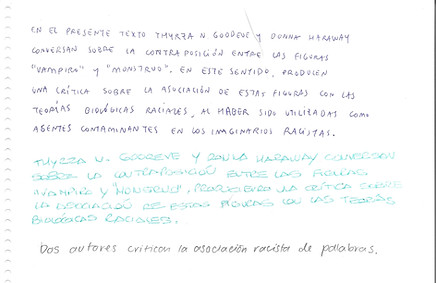 EN EL PRESENTE TEXTO THYRZA N. GOODEVE Y DONNA HARAWAY
CONVERSAN SOBRE LA CONTRAPOSICIÓN ENTRE LAS FIGURAS
"VAMPIRO" Y "MONSTRUO". EN ESTE SENTIDO, PRODUCEN
UNA CRÍTICA SOBRE LA ASOCIACIÓN DE ESTAS FIGURAS CON LAS
TEORÍAS BIOLÓGICAS RACIALES, AL HABER SIDO UTILIZADAS COMO
AGENTES CONTAMINANTES EN LOS IMAGINARIOS RACISTAS.
THYRZA N. GOODEVE Y HARAWAY CONVERSAN
SOBRE LA CONTRAPOSICIÓN ENTRE LAS FIGURAS
"VAMPIRO" Y "MONSTRUO", CRÍTICA SOBRE
LA ASOCIACIÓN DE ESTAS FIGURAS CON LAS TEORÍAS
BIOLÓGICAS RACIALES.
Dos autores critican la asociación racista de palabras.